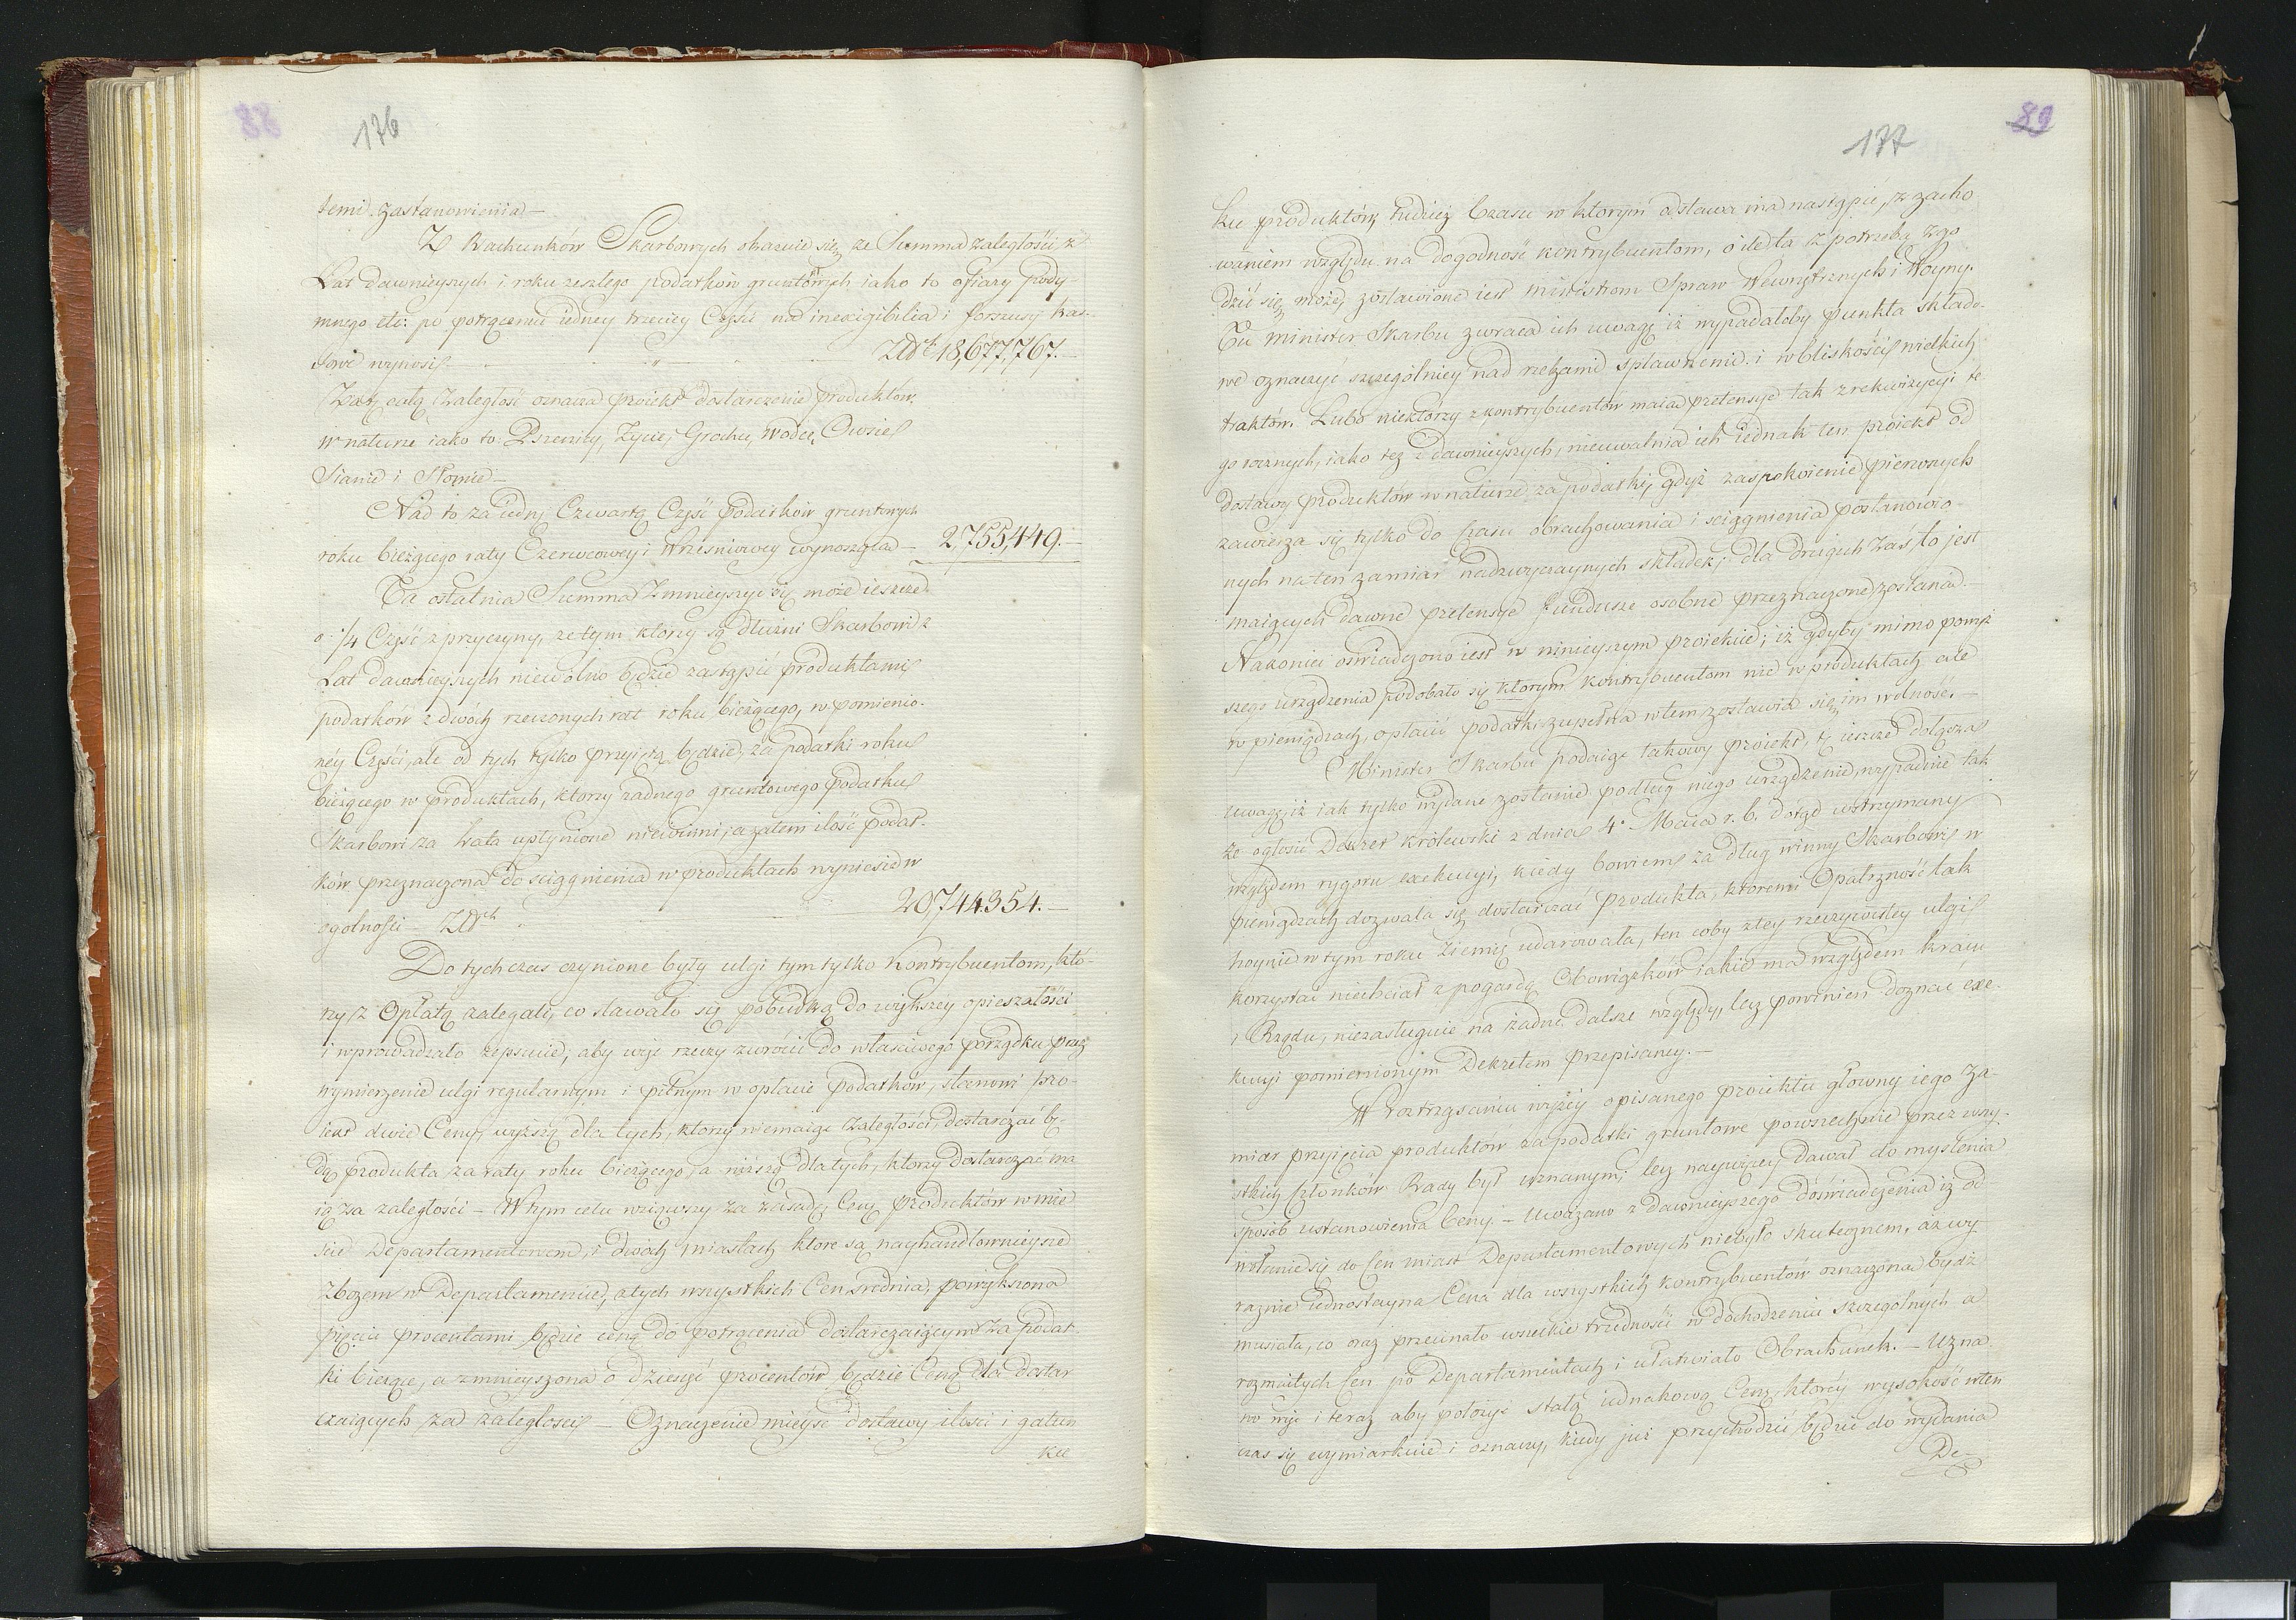 88
176
temi zastanowienia —
Z Rachunków Skarbowych okazuie się, że Summa zaległości z
Lat dawnieyszych i roku zeszłego podatków gruntowych iako to ofiary pody-
mnego etc: po potrąceniu iedney trzeciey Części na inexigibilia i forszusy kas-
sowe wynosi — " — Złot. 18,677,767. —
Zatę całą Zaległość oznacza proiekt dostarczenie produktów
w naturze iako to: Pszenicy, Życie, Grochu, Wodce, Owsie
Sianie i Słomie —
Nad to za iedną Czwartą Część podatków gruntowych
roku bieżącego raty Czerwcowey i Wrześniowey wynoszącą — 2,755,449. —
Ta ostatnia Summa Zmnieyszyć się może ieszcze
o ¼ Część z przyczyny, że tym którzy są dłużni Skarbowi z
Lat dawnieyszych niewolno będzie zastąpić produktami
podatków z dwóch rzeczonych rat roku bieżącego, w pomienio-
néy Części, ale od tych tylko przyjętą będzie, za podatki roku
bieżącego w produktach, którzy żadnego gruntowego podatku
Skarbowi za Lata upłynione niewinni; a zatem ilość podat-
ków przeznaczona do sciągnienia w produktach wyniesie w
ogolności — Złot. 20,744,354. —
Dotychczas czynione były ulgi tym tylko Kontrybuentom, któ-
rzy z Opłatą zalegali, co stawało się pobudką do większey opieszałości
i wprowadzało zepsucie, aby więc rzeczy zwrócić do właściwego porządku przez
wymierzenie ulgi regularnym i pilnym w opłacie podatków, stanowi Pro-
iekt dwie Ceny, wyższą dla tych, którzy niemaiąc Zaległości, dostarczać bę-
dą produkta za raty roku bieżącego, a niższą dla tych, którzy dostarczać ma-
ią za zaległości — W tym celu wziąwszy za zasadę Ceny produktów w mie-
scie Departamentowem, i dwóch miastach które są nayhandlownieysze
Zbożem w Departamencie, a tych wszystkich Cen srednia, powiększona
pięciu procentami będzie ceną do potrącenia dostarczaiącym za podat-
ki bieżące, a zmnieyszona o dziesięć procentów będzie Ceną dla dostar-
czaiących za zaległości — Oznaczenie mieysc dostawy ilości i gatun
ku
89
177
ku produktów, tudzież Czasu w którym dostawa ma nastąpić, z zacho
waniem względu na dogodność kontrybuentom, o ile ta z potrzebą zgo
dzić się może, zostawione iest ministrom Spraw Wewnętrznych i Woyny.
Tu minister Skarbu zwraca ich uwagę iż wypadałoby punkta składo-
we oznaczyć szczególniey nad rzekami spławnemi i w bliskości wielkich
traktów. Lubo niektórzy z kontrybuentów maią pretensye tak z rekwizycyi te
go rocznych, iako też z dawnieyszych, nieuwalnia ich iednak ten proiekt od
dostawy produktów w naturze za podatki, gdyż zaspokoienie pierwszych
zawiesza się tylko do Czasu obrachowania i sciągnienia postanowio-
nych na ten zamiar nadzwyczaynych składek; dla drugich zaś, to jest
maiących dawne pretensye fundusze osobne przeznaczone zostaną. —
Nakoniec oświadczono iest w ninieyszym proiekcie; iż gdyby mimo powyż
szego urządzenia podobało się którym kontrybuentom nie w produktach ale
w pieniądzach, opłacić podatki zupełna w tem zostawia się im wolność. —
Minister Skarbu podaiąc takowy proiekt, tę ieszcze dołącza
uwagę, iż iak tylko wydane zostanie podług niego urządzenie, wypadnie tak
że ogłosić Dekret Królewski z dnia 4° Maia r. b. dotąd wstrzymany
względem rygoru exekucyi, kiedy bowiem za dług winny Skarbowi w
pieniądzach dozwala się dostarczać Produkta, któremi Opatrzność tak
hoynie w tym roku Ziemię udarowała, ten coby z tey rzeczywistey ulgi
korzystać niechciał z pogardą Obowiązków iakie ma względem kraiu
i Rządu, niezasługuie na żadne dalsze względy, lecz powinien doznać exe-
kucyi pomienionym Dekretem przepisaney. —
W roztrząsaniu wyżéy opisanego proiektu główny iego Za-
miar przyjęcia produktów za podatki gruntowe powszechnie przez wszy-
stkich członków Rady był uznanym; lecz naywięcey dawał do myślenia
sposób ustanowienia Ceny. — Uważano z dawnieyszego doświadczenia iż od
wołanie się do Cen miast Departamentowych niebyło skutecznem, aż wy
raźnie iednostayna Cena dla wszystkich kontrybuentów oznaczona bydź
musiała, co oraz przecinało wszelkie trudności w dochodzeniu szczególnych a
rozmaitych Cen po Departamentach i ułatwiało Obrachunek. — Uzna
no więc i teraz aby położyć stałą iednakową Cenę, którey wysokość wten
czas się wymiarkuie i oznaczy, kiedy już przychodzić będzie do wydania
De-